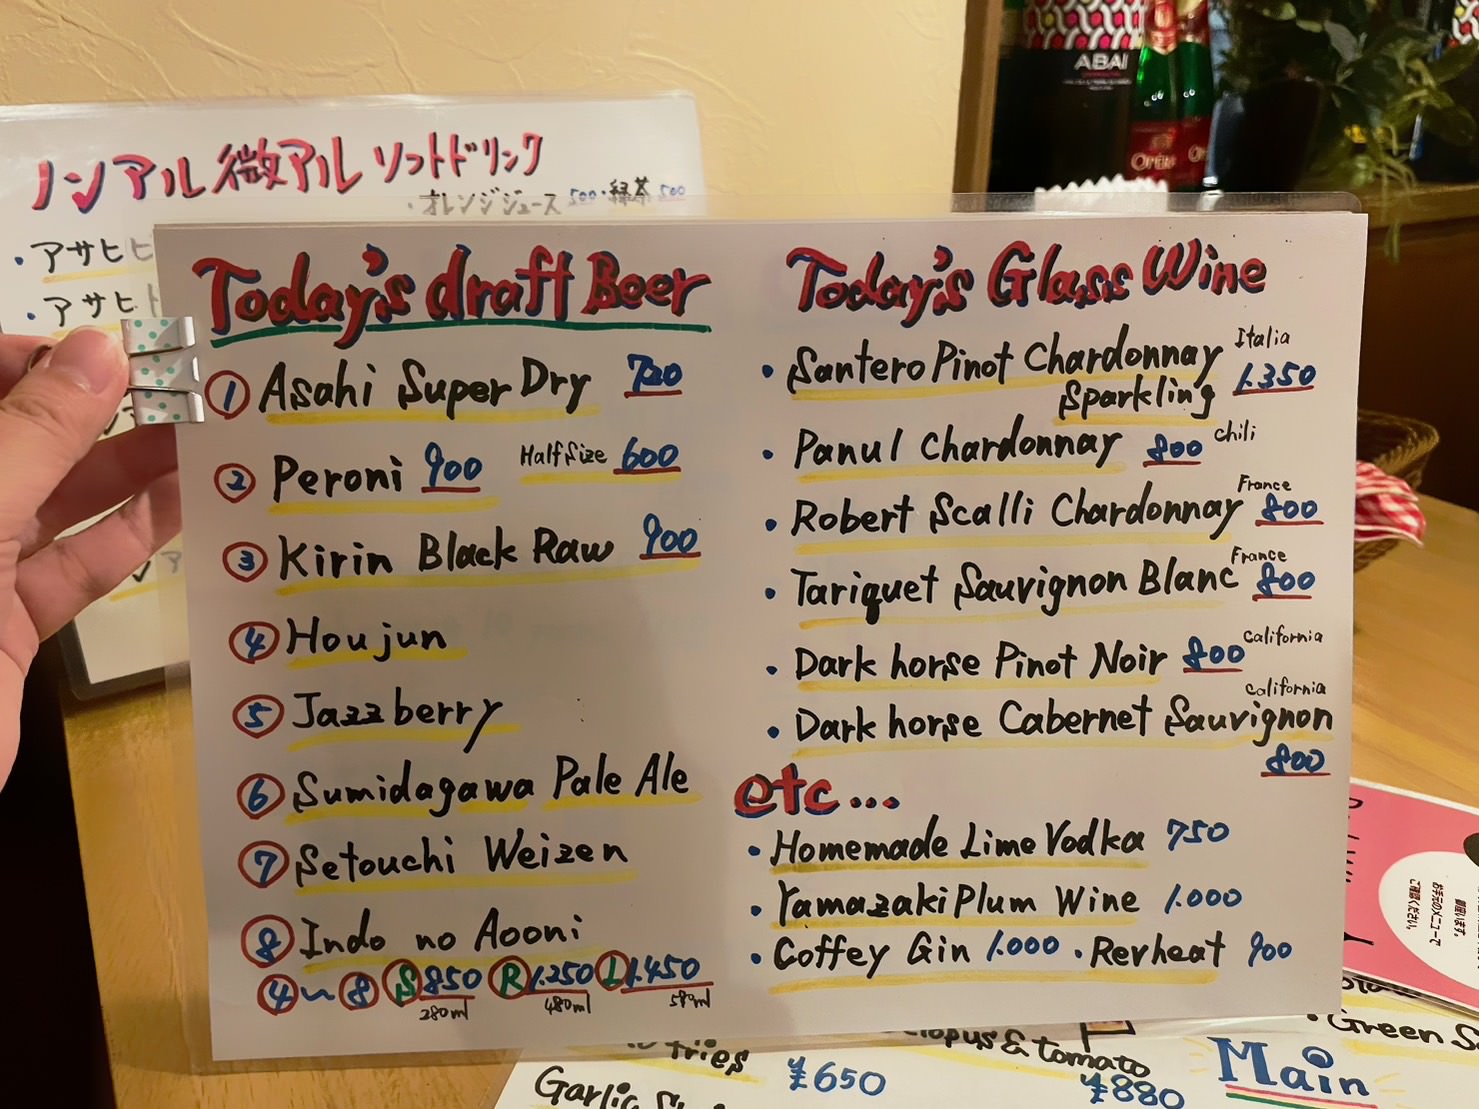 ABAI
OPERA
ノンアル 微アル ソフトドリンク
・オレンジジュース 500 ・緑茶 500
・アサヒビ
・アサヒ
Today's draft Beer
① Asahi Super Dry 720
② Peroni 900 Half Size 600
③ Kirin Black Raw 900
④ Houjun
⑤ Jazzberry
⑥ Sumidagawa Pale Ale
⑦ Setouchi Weizen
⑧ Indo no Aooni
④~⑧ Ⓢ 850 Ⓡ 1.250 Ⓛ 1.450
280ml 480ml 580ml
Today's Glass Wine
・Santero Pinot Chardonnay Italia
Sparkling 1.350
・Panul Chardonnay 800 Chili
・Robert Scalli Chardonnay France 800
・Tariquet Sauvignon Blanc France 800
・Dark horse Pinot Noir 800 California
・Dark horse Cabernet Sauvignon California
800
etc...
・Homemade Lime Vodka 750
・Yamazaki Plum Wine 1.000
・Coffey Gin 1.000 ・Revheat 900
お手元のメニューで
ご確認ください。
fries ¥650
Garlic
& tomato
¥880
・Green
Main